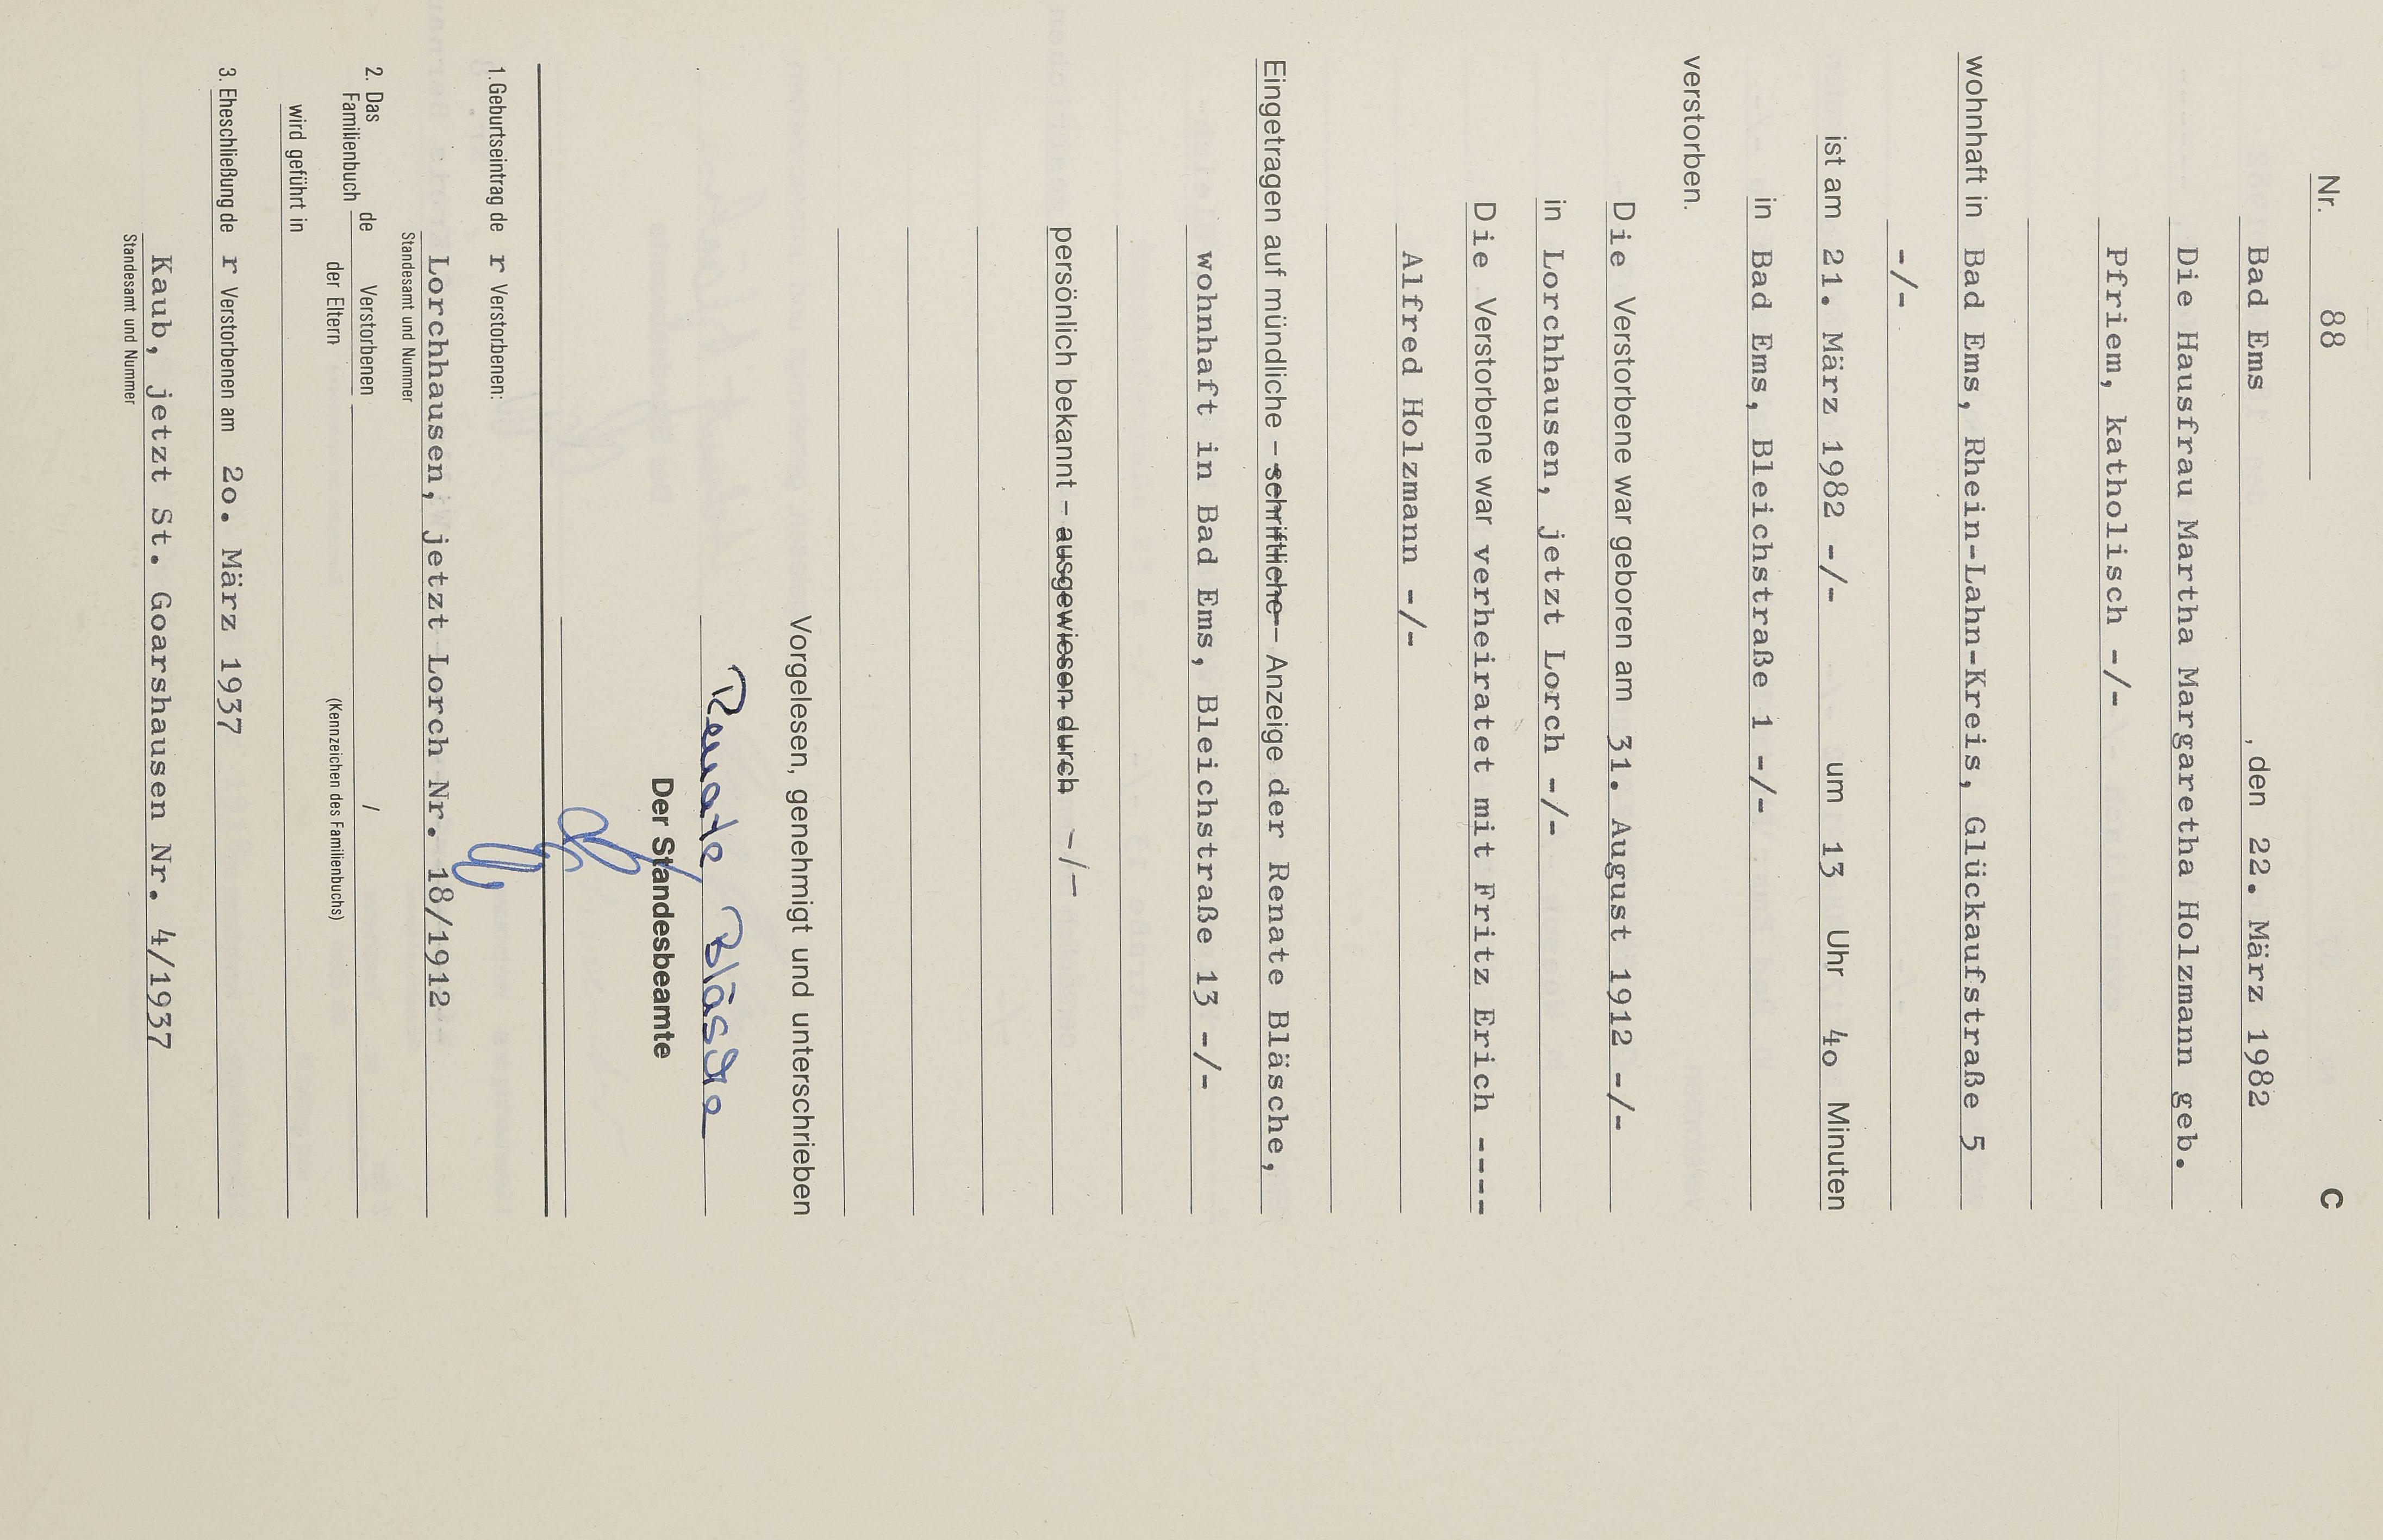 C
Nr. 88
Bad Ems , den 22. März 1982
Die Hausfrau Martha Margaretha Holzmann geb.
Pfriem, katholisch -/-
wohnhaft in Bad Ems, Rhein-Lahn-Kreis, Glückaufstraße 5
-/-
ist am 21. März 1982 -/- um 13 Uhr 4o Minuten
in Bad Ems, Bleichstraße 1 -/-
verstorben.
Die Verstorbene war geboren am 31. August 1912 -/-
in Lorchhausen, jetzt Lorch -/-
Die Verstorbene war verheiratet mit Fritz Erich ----
Alfred Holzmann -/-
Eingetragen auf mündliche – schriftliche – Anzeige der Renate Bläsche,
wohnhaft in Bad Ems, Bleichstraße 13 -/-
persönlich bekannt – ausgewiesen durch -/-
Vorgelesen, genehmigt und unterschrieben
Renate Bläsche
Der Standesbeamte
1. Geburtseintrag de r Verstorbenen:
Lorchhausen, jetzt Lorch Nr. 18/1912
Standesamt und Nummer
2. Das Familienbuch de Verstorbenen /
der Eltern (Kennzeichen des Familienbuchs)
wird geführt in
3. Eheschließung de r Verstorbenen am 2o. März 1937
Kaub, jetzt St. Goarshausen Nr. 4/1937
Standesamt und Nummer